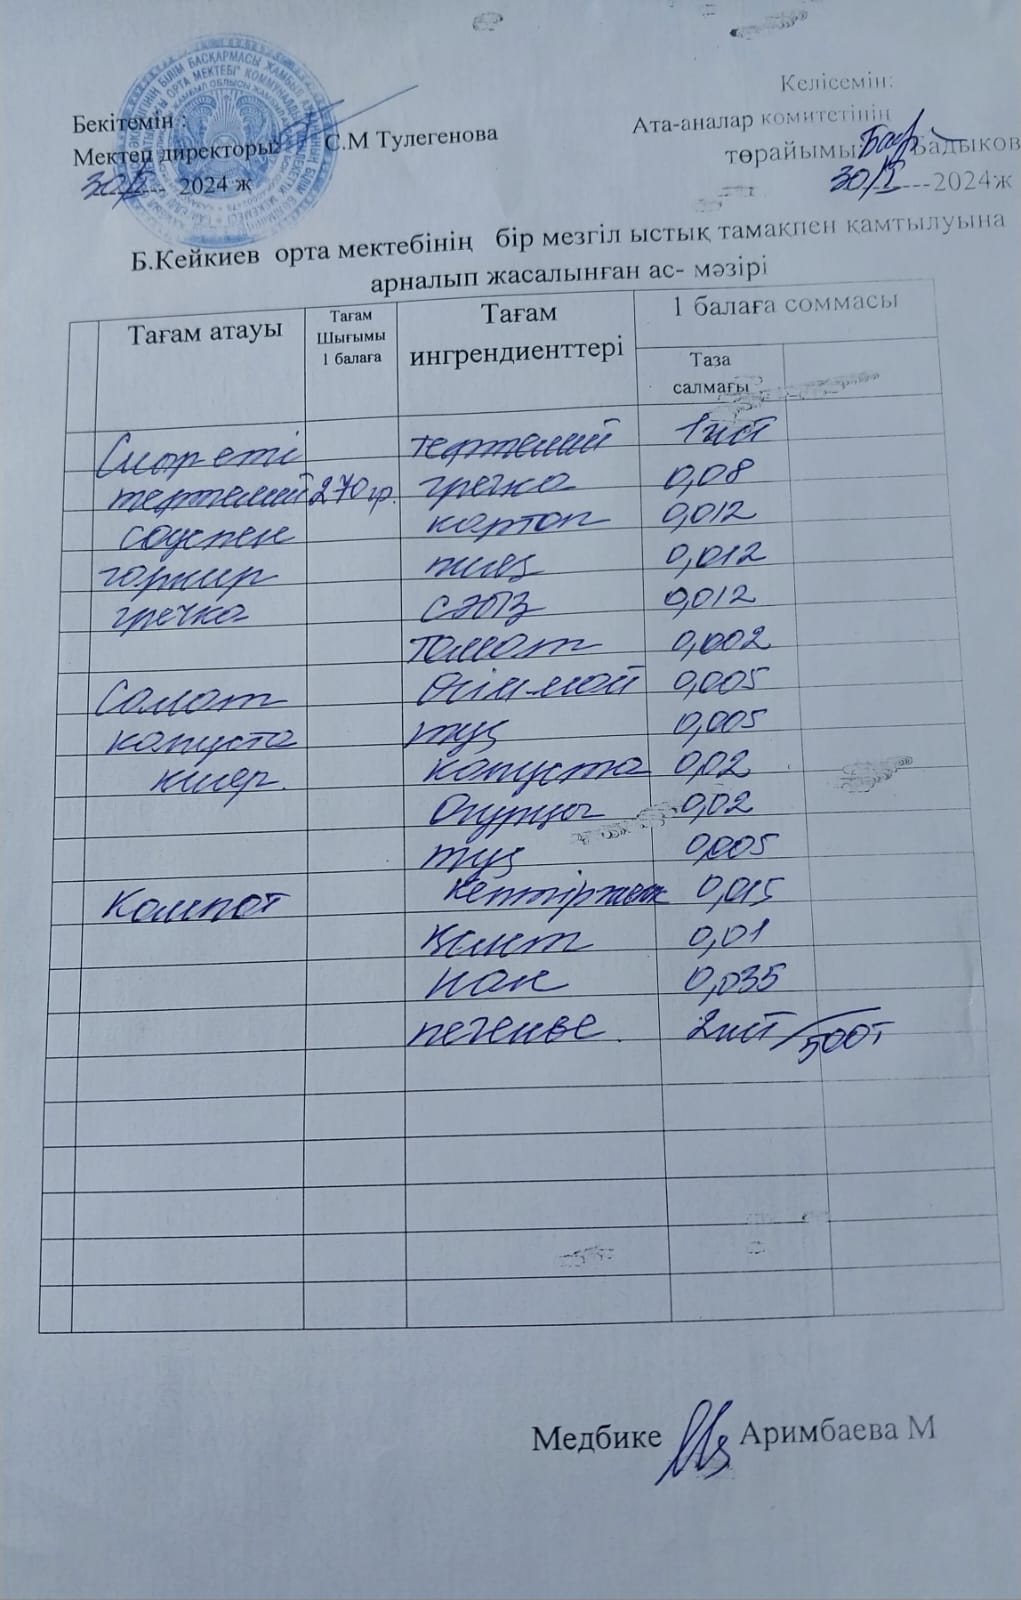 Бекітемін :
Мектеп директоры С.М Тулегенова
30/I --- 2024 ж
Келісемін:
Ата-аналар комитетінің
төрайымы Бадыков
30/I ---2024ж
Б.Кейкиев орта мектебінің бір мезгіл ыстық тамақпен қамтылуына
арналып жасалынған ас- мәзірі
Тағам атауы Тағам Шығымы 1 балаға Тағам ингрендиенттері 1 балаға соммасы
Таза салмағы
Сиыр еті тефтелий 1шт
тефтелий 270 гр. гречка 0,08
соуспен картоп 0,012
горнир пияз 0,012
гречка сәбіз 0,012
томат 0,002
Салат өсім.май 0,005
капуста тұз 0,005
қияр. капуста 0,02
Огурцы 0,02
тұз 0,005
Компот кептіржеміс 0,015
қант 0,01
нан 0,035
печенье. 2шт/500т
Медбике Аримбаева М